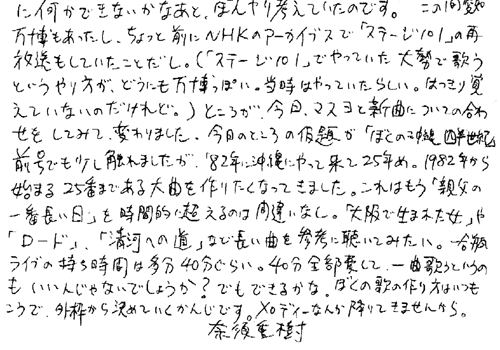 に何かできないかなあと、ぼんやり考えていたのです。この間愛知
万博もあったし、ちょっと前にNHKのアーカイブスで「ステージ101」の再
放送もしていたことだし。(「ステージ101」でやっていた大勢で歌う
というやり方が、どうにも万博っぽい。当時はやっていたらしい。はっきり覚
えていないのだけれど。)ところが、今日、マスヨと新曲についての合わ
せをしてみて、変わりました。今日のところの仮題が「ぼくの沖縄四半世紀」
前号でも少し触れましたが、'82年に沖縄にやって来て25年め。1982年から
始まる25番まである大曲を作りたくなってきました。これはもう「親父の
一番長い日」を時間的に超えるのは間違いなし。「大阪で生まれた女」や
「ロード」、「清河への道」など長い曲を参考に聴いてみたい。今度
ライブの持ち時間は多分40分ぐらい。40分全部費して、一曲歌うというの
もいいんじゃないでしょうか?でもできるかな。ぼくの歌の作り方はいつも
こうで、外枠から決めていくかんじです。メロディーなんか降りてきませんから。
奈須重樹